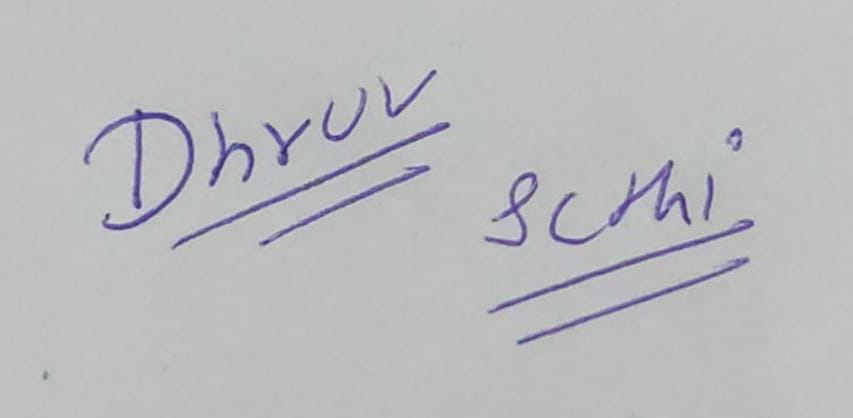 Dhruv
Sethi